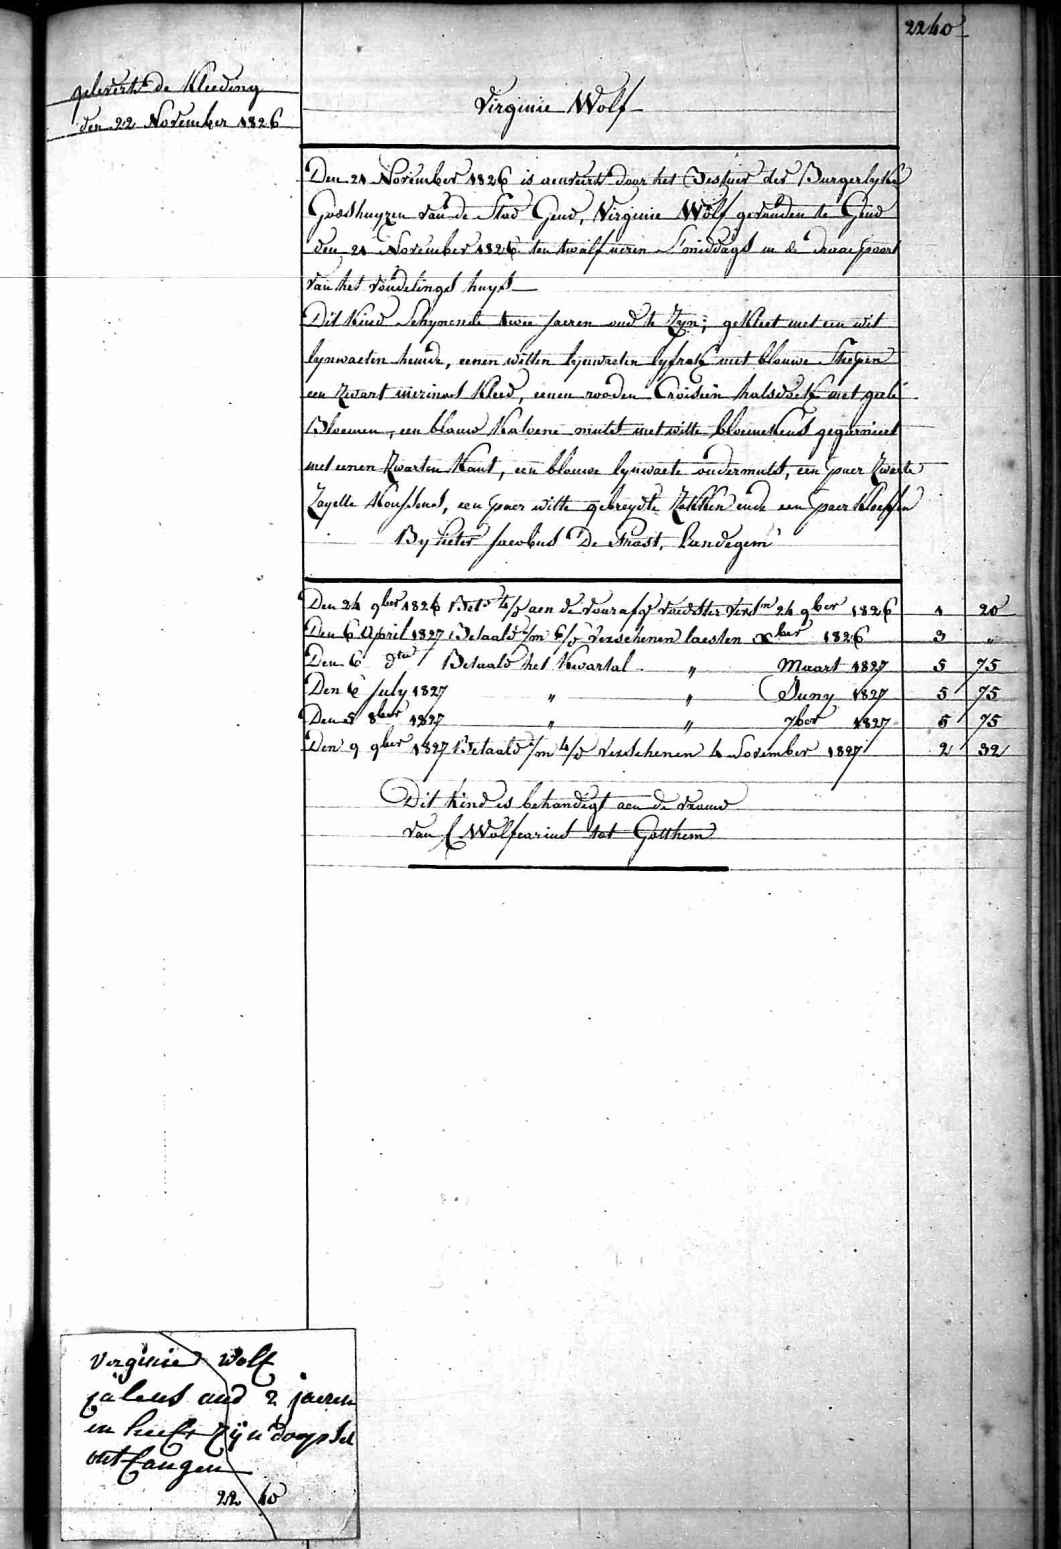 2240
gelevert de Kleeding
den 22 November 1826
Virginie Wolf
Den 21 November 1826 is aenveird door het Bestuer der Burgerlyke
Godshuyzen van de Stad Gend, Virginie Wolf gevonden te Gend
den 21 November 1826 ten twalf ueren s'middags in de draeypoort
van het vondelings huys
Dit Kind Schynende twee jaeren oud te Zyn; gekleet met een wit
lynwaeten hemde, eenen witten lynwaeten lyfrok met blauwe Strepen
een Zwart merinos Kleed, eenen rooden Croisèin halsdoek met geele
Bloemen, een blauw Katoene mutst met witte bloemekens gegarniert
met eenen Zwarten Kant, een blauwe lynwaete ondermutst, een paer Zwarte
Zayette Kousens, een paer witte gebreyde Zokken ende een paer Kloeffen
By Pieter Jacobus De Smast, Landegem
Den 24 9ber 1826 Bet.d 4/d aen de voorafg.e voedster verst.n 24 9ber 1826 1 20
Den 6 April 1827 Betaald /m 6/d verschenen laesten Xber 1826 3 "
Den 6 dto Betaald het Kwartal " Maart 1827 5 75
Den 6 July 1827 " " Juny 1827 5 75
Den 5 8ber 1827 " " 7ber 1827 5 75
Den 9 9ber 1827 Betaald /m 4/d verschenen 4 November 1827 2 32
Dit kind is behandigt aen de vrouw
van C Wolfcarius tot Gotthem
virginie wolf
oud 2 jaeren
en heeft zijn doopsel
ontfangen
22 40